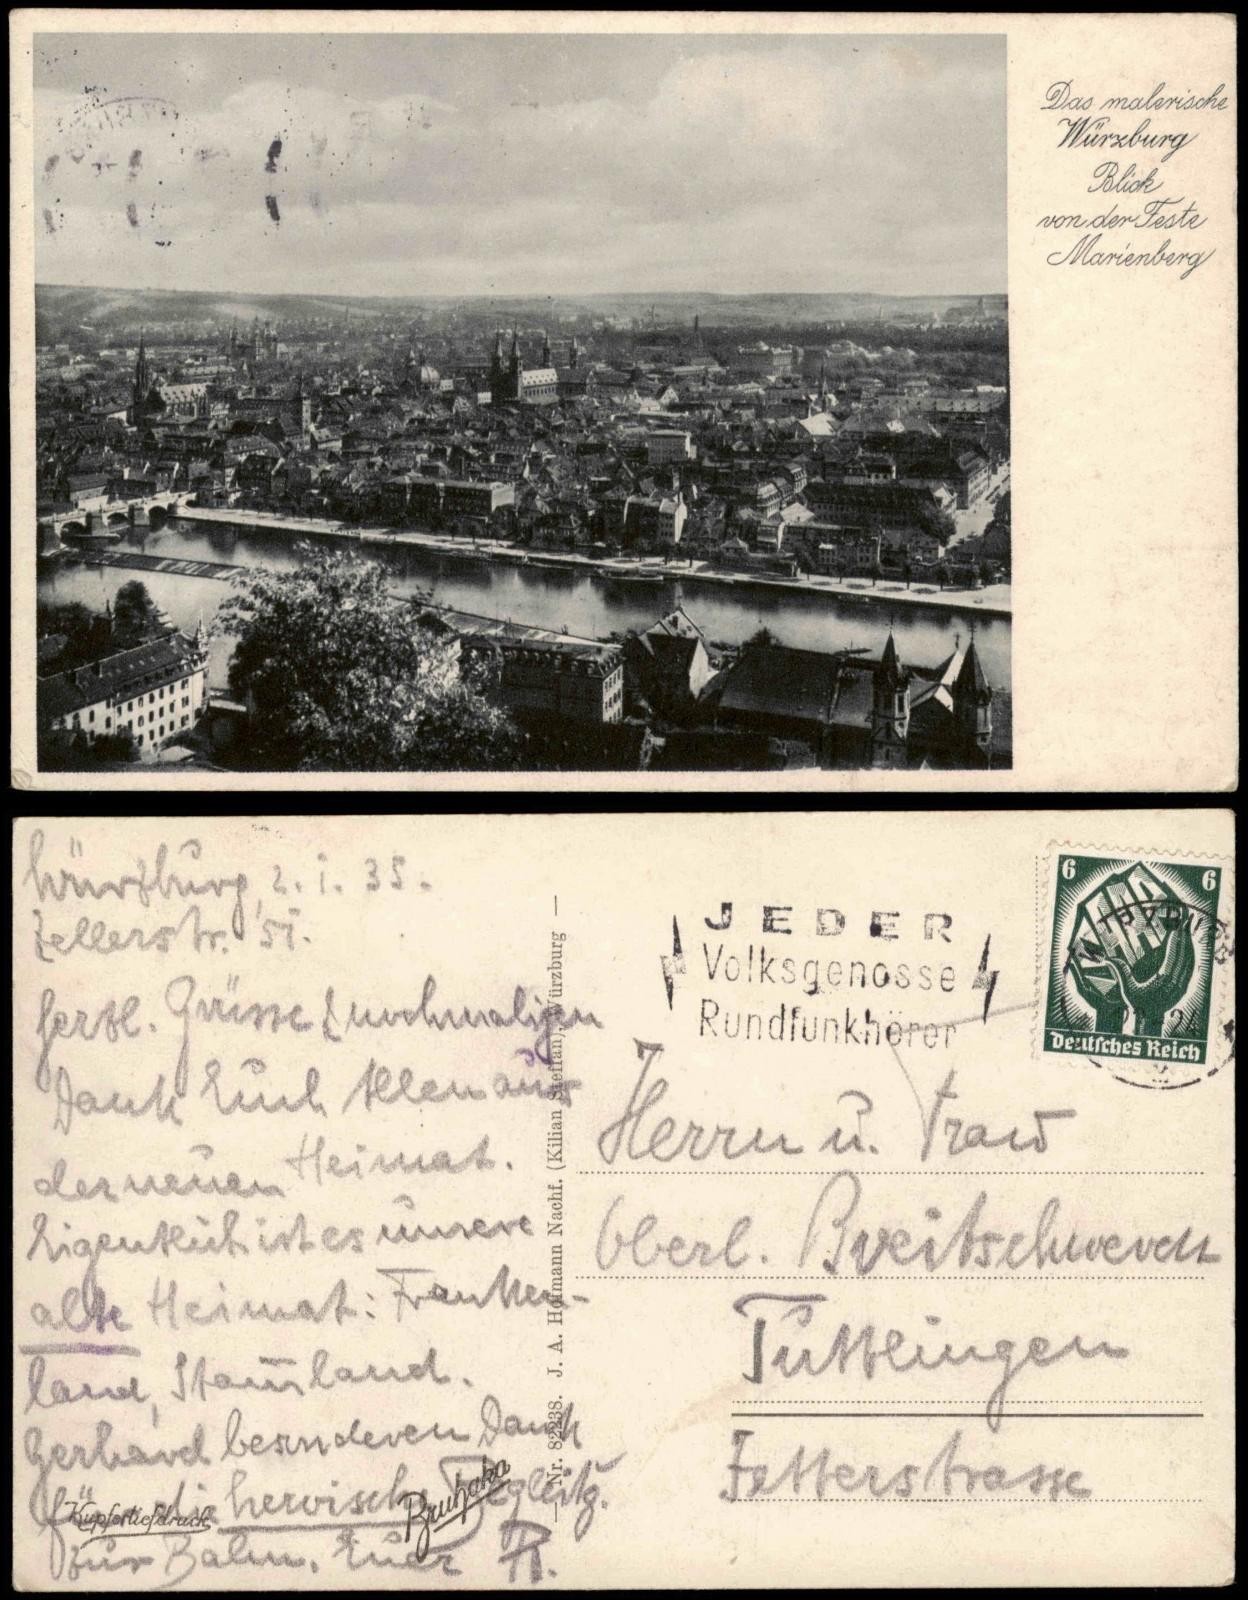 Das malerische
Würzburg
Blick
von der Feste
Marienberg
Würzburg, 2. 1. 35.
Zellerstr. 51.
Herzl. Grüsse & nochmaligen
Dank Euch Allen aus
der neuen Heimat.
Eigentlich ist es unsere
alte Heimat: Franken-
land, Stammland.
Gerhard besonderen Dank
für die heroische Begleitg.
zur Bahn. Euer R.
Kupfertiefdruck
Bruhaka
— Nr. 82238. J. A. Hofmann Nachf. (Kilian Steffan), Würzburg —
JEDER
Volksgenosse
Rundfunkhörer
6 6
SAAR
Deutsches Reich
WÜRZBURG
Herrn u. Frau
Oberl. Breitschwerdt
Tuttlingen
Zetterstrasse